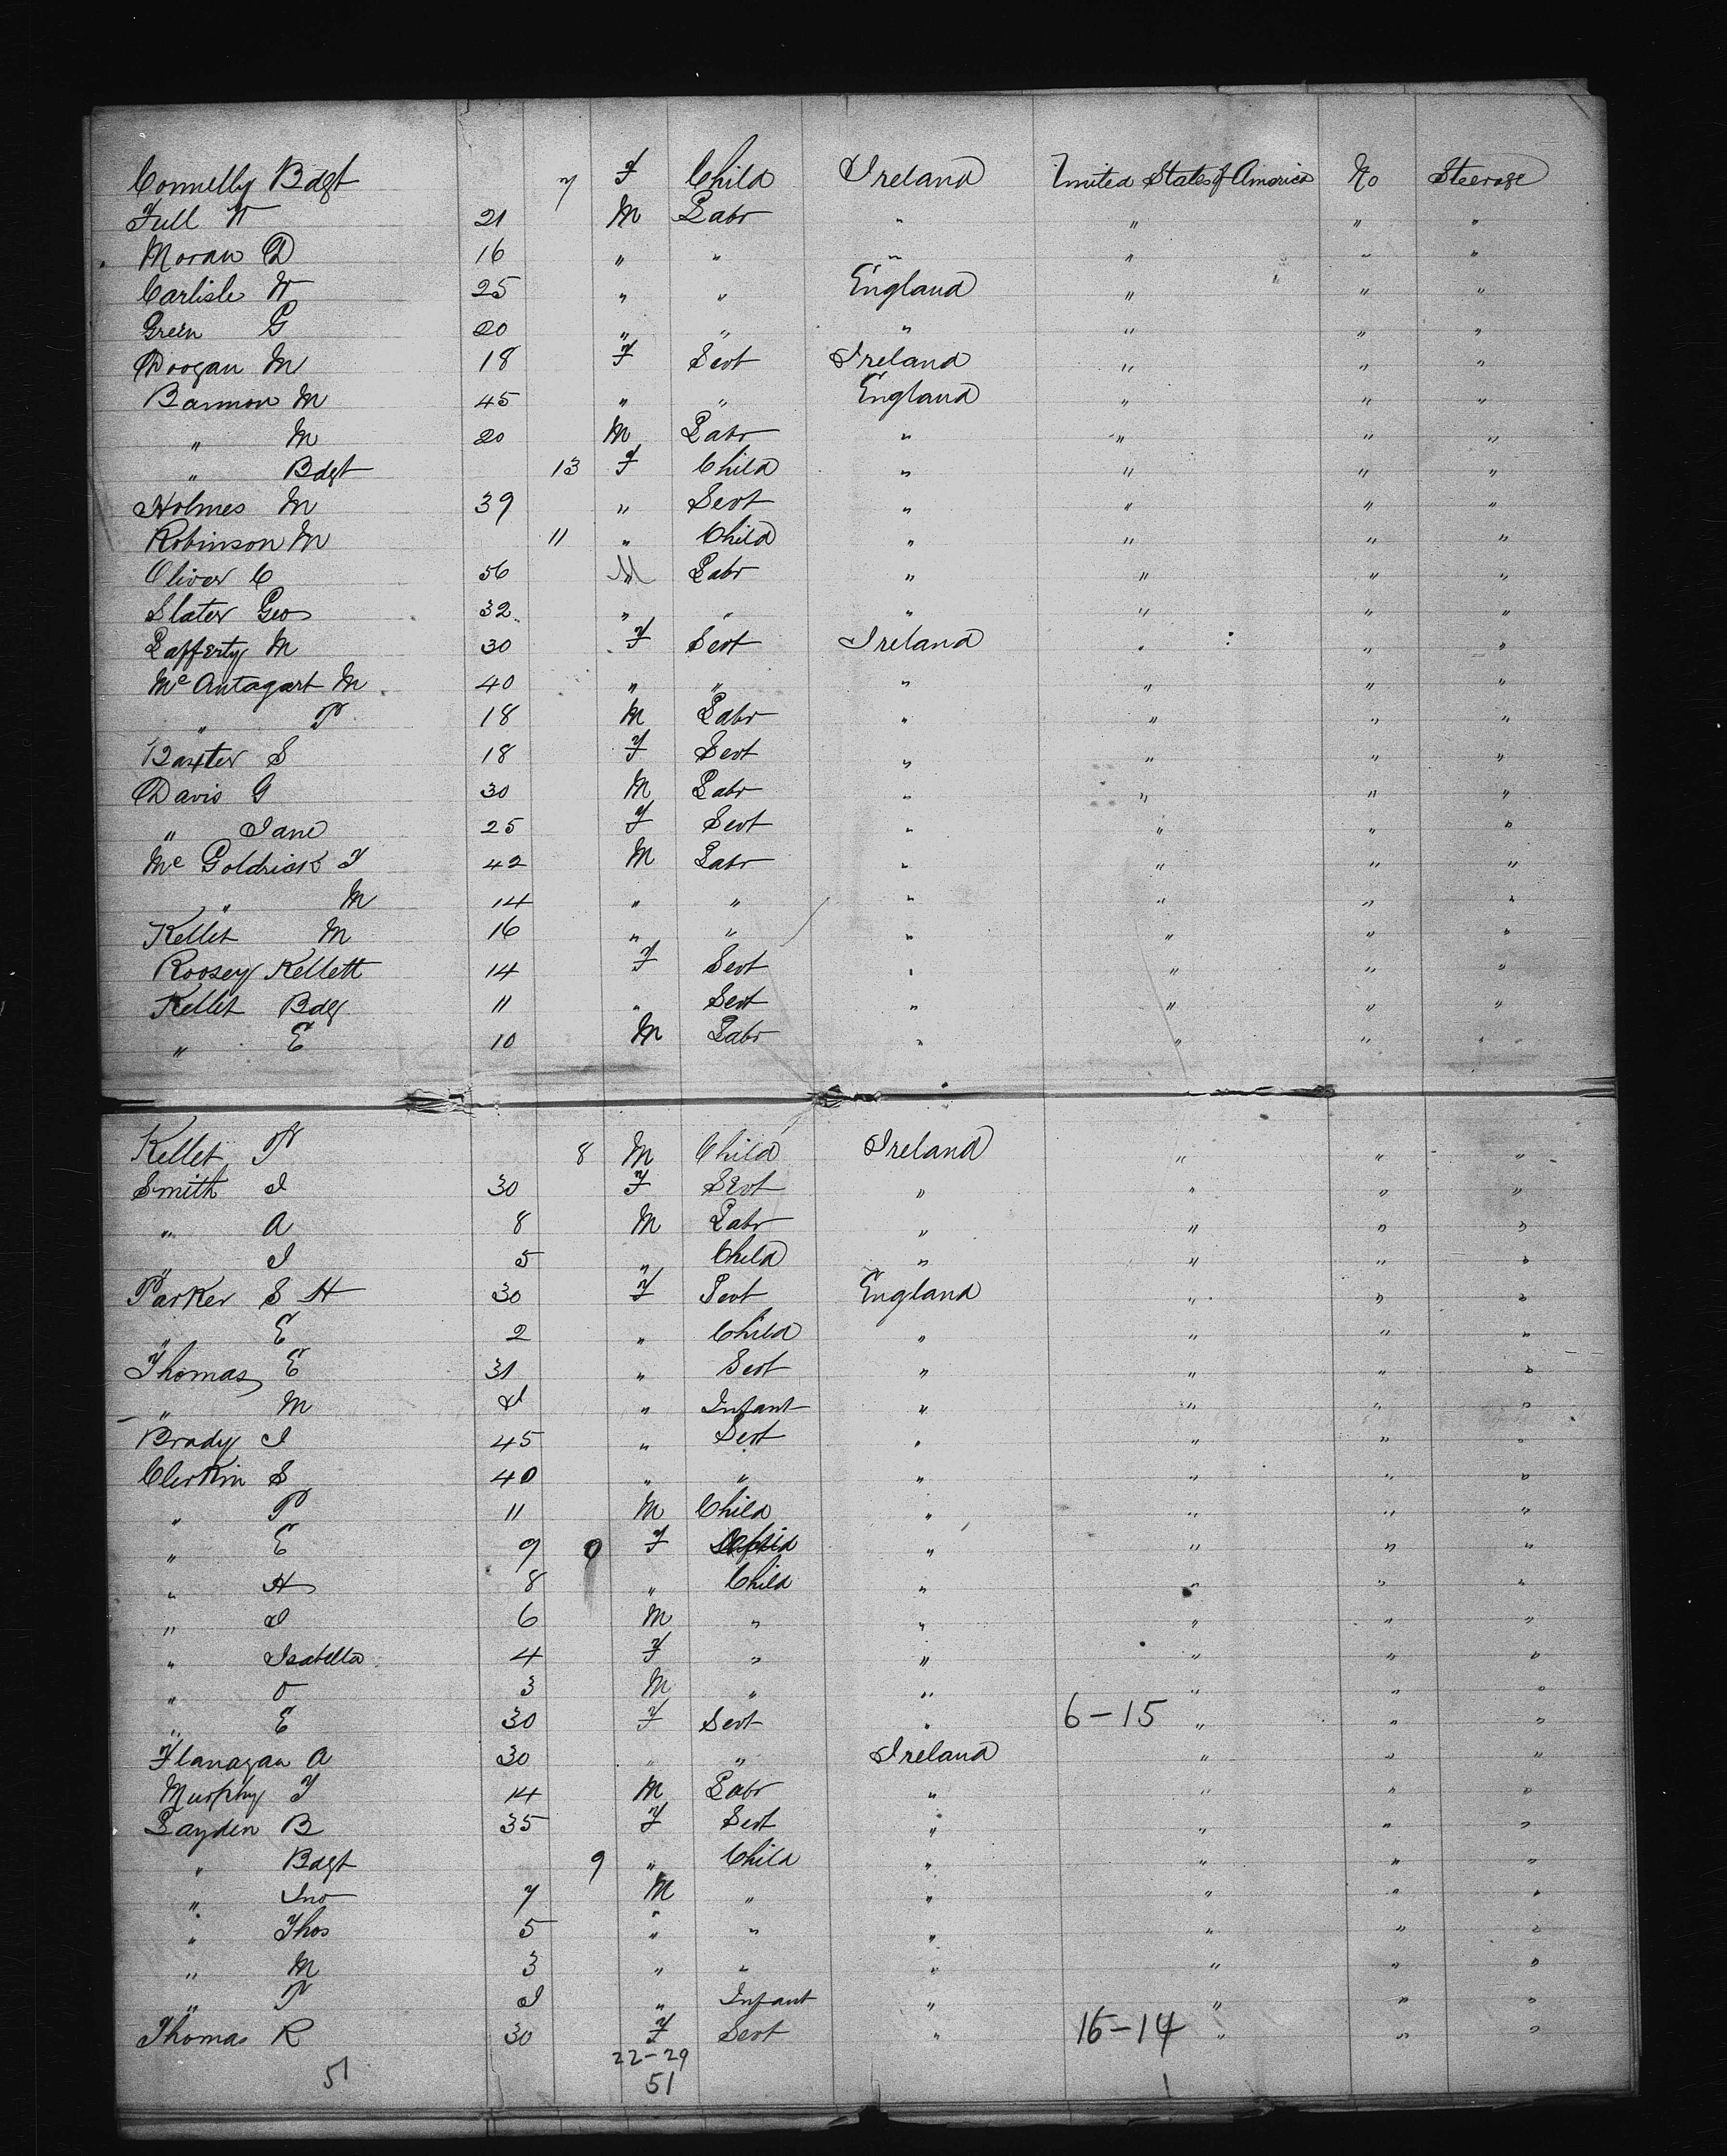 Connelly Bdgt 7 F Child Ireland United States of America No Steerage
Full W 21 M Labr " " " "
Moran D 16 " " " " " "
Carlisle W 25 " " England " " "
Green G 20 " " " " " "
Doogan M 18 F Sevt Ireland " " "
Bannon M 45 " " England " " "
" M 20 M Labr " " " "
" Bdgt 13 F Child " " " "
Holmes M 39 " Sevt " " " "
Robinson M 11 " Child " " " "
Oliver C 56 M Labr " " " "
Slater Geo 32 " " " " " "
Lafferty M 30 F Sevt Ireland " " "
Mc Antagart M 40 " " " " " "
" P 18 M Labr " " " "
Baxter S 18 F Sevt " " " "
Davis G 30 M Labr " " " "
" Jane 25 F Sevt " " " "
Mc Goldrick T 42 M Labr " " " "
" M 14 " " " " " "
Kellet M 16 " " " " " "
Roosey Kellett 14 F Sevt " " " "
Kellet Bdg 11 " Sevt " " " "
" E 10 M Labr " " " "
Kellet P 8 M Child Ireland " " "
Smith J 30 F Sevt " " " "
" A 8 M Labr " " " "
" J 5 " Child " " " "
Parker S H 30 F Sevt England " " "
" E 2 " Child " " " "
Thomas E 31 " Sevt " " " "
" M " Infant " " " "
Brady J 45 " Sevt " " " "
Clerkin S 40 " " " " " "
" P 11 M Child " " " "
" E 9 9 F " " " "
" H 8 " Child " " " "
" J 6 M " " " " "
" Isabella 4 F " " " " "
" O 3 M " " " " "
" E 30 F Sevt " 6-15 " " "
Flanagan A 30 " " Ireland " " "
Murphy T 14 M Labr " " " "
Layden B 35 F Sevt " " " "
" Bdgt 9 " Child " " " "
" Jno 7 M " " " " "
" Thos 5 " " " " " "
" M 3 " " " " " "
" P " Infant " " " "
Thomas R 30 F Sevt " 16-14 " " "
22-29
51 51 1